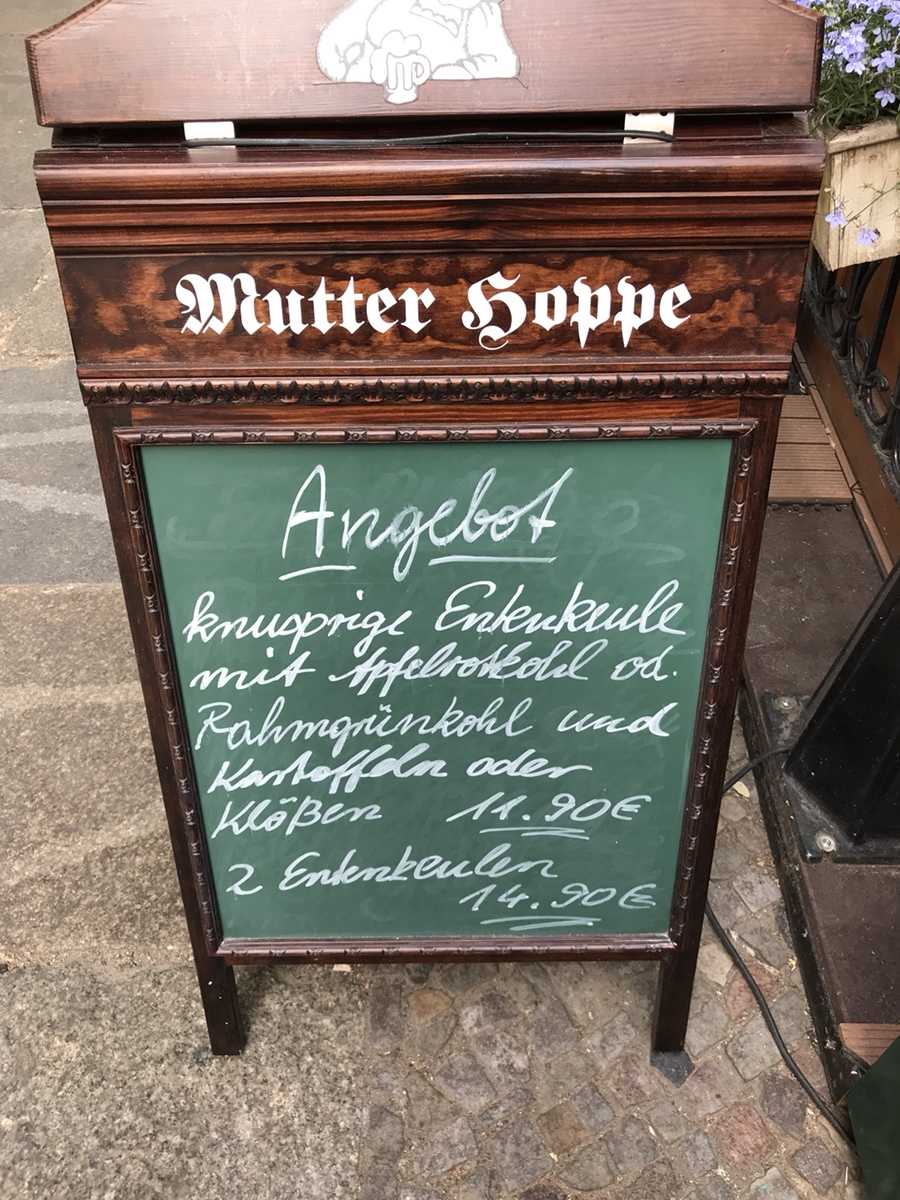 Mutter Hoppe
Angebot
knusprige Entenkeule
mit Apfelrotkohl od.
Rahmgrünkohl und
Kartoffeln oder
Klößen 11.90€
2 Entenkeulen
14.90€